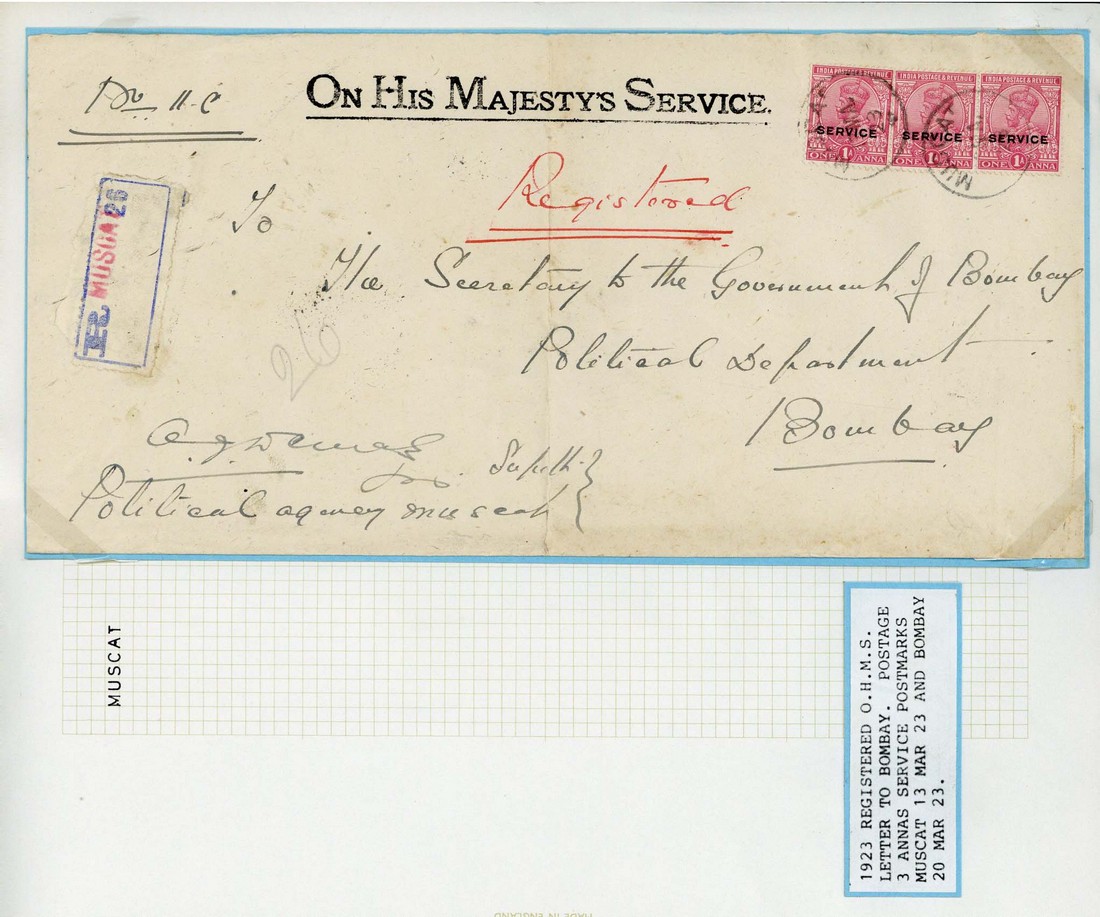 ON HIS MAJESTY'S SERVICE.
INDIA POSTAGE & REVENUE
SERVICE
ONE 1A ANNA
INDIA POSTAGE & REVENUE
SERVICE
ONE 1A ANNA
INDIA POSTAGE & REVENUE
SERVICE
ONE 1A ANNA
R MUSCAT
26
Registered
To
The Secretary to the Government of Bombay
Political Department
Bombay
26
Political agency Muscat
MUSCAT
1923 REGISTERED O.H.M.S.
LETTER TO BOMBAY. POSTAGE
3 ANNAS SERVICE POSTMARKS
MUSCAT 13 MAR 23 AND BOMBAY
20 MAR 23.
MADE IN ENGLAND